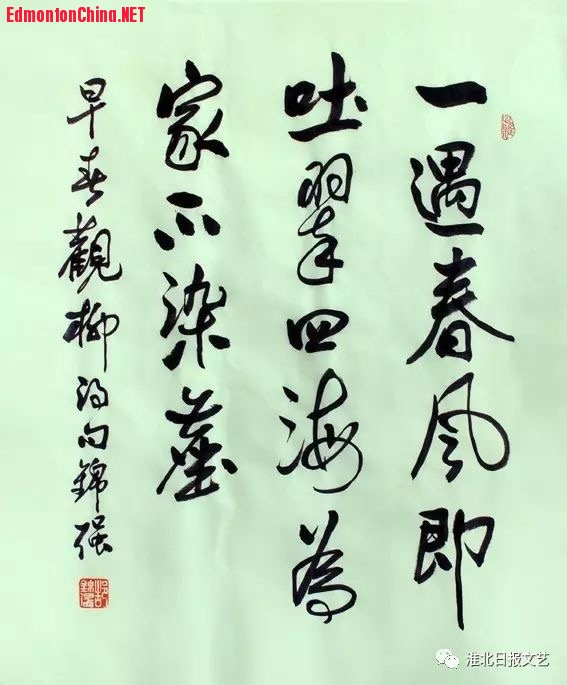 EdmontonChina.NET
一遇春风即
吐翠四海為
家不染塵
早春觀柳得句錦强
淮北日报文艺